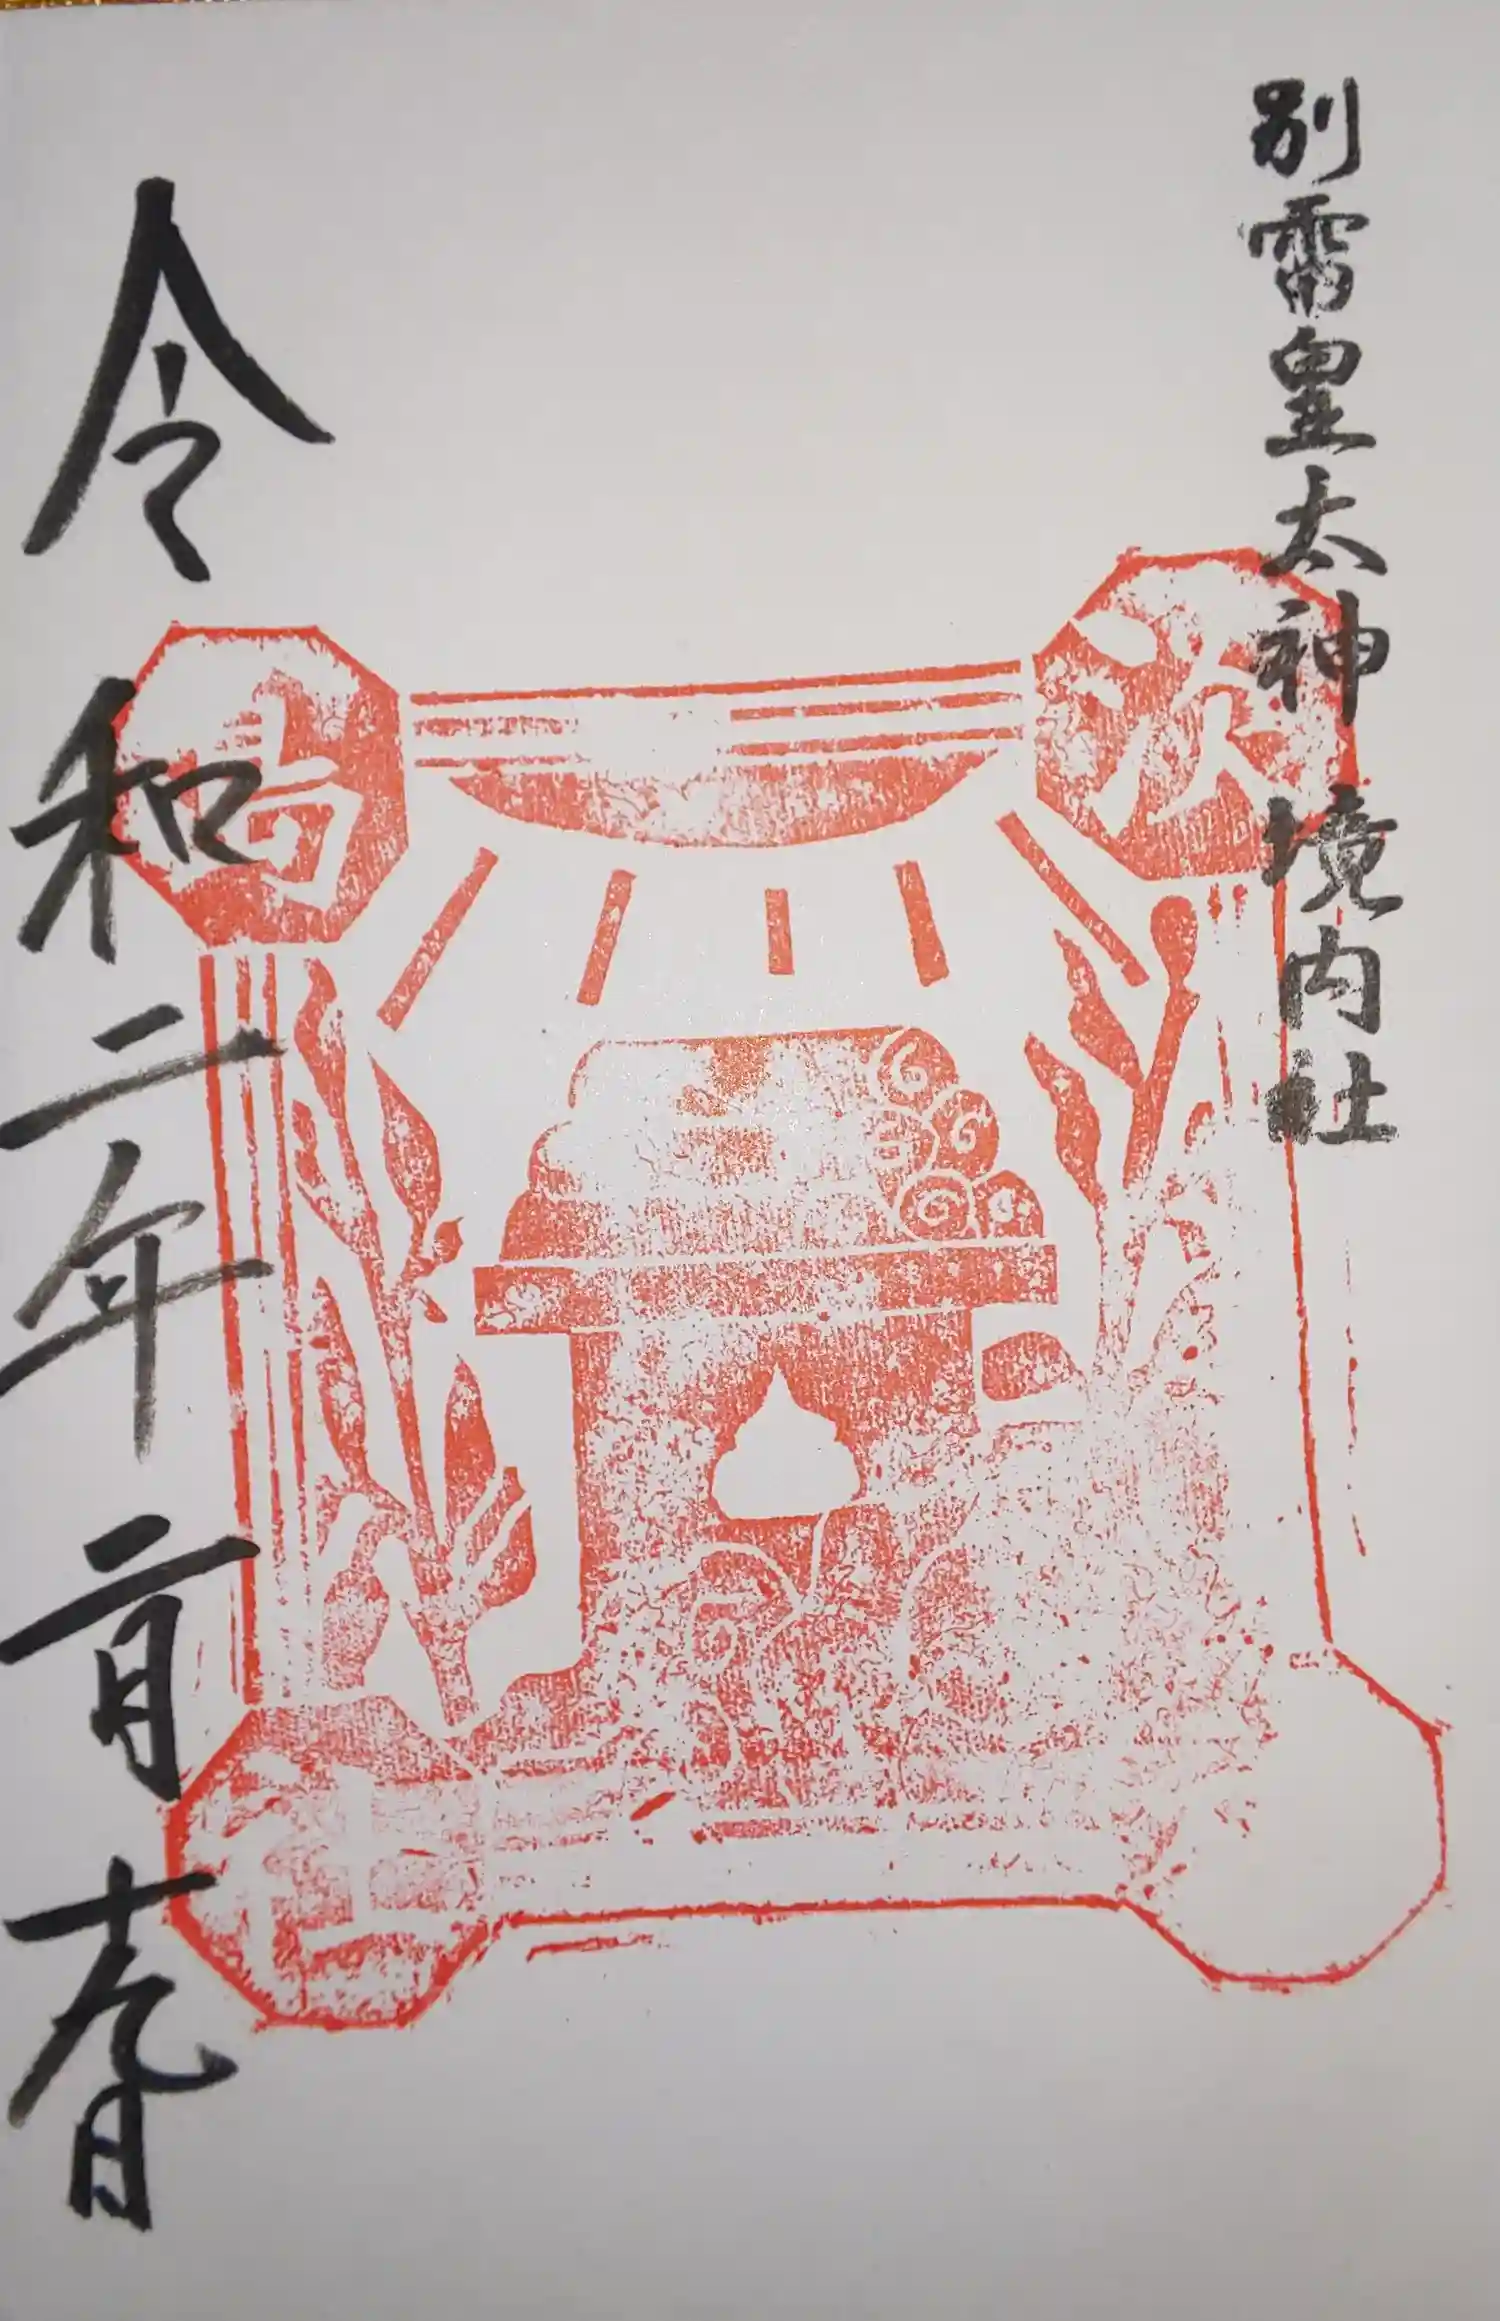 別雷皇太神境内社
令和二年二月十九日